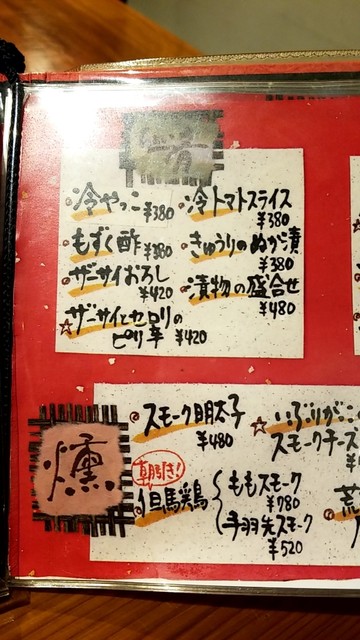 冷やっこ ¥380
もずく酢 ¥380
ザーサイおろし
¥420
ザーサイとセロリの
ピリ辛 ¥420
冷トマトスライス
¥380
きゅうりのぬか漬
¥380
漬物の盛合せ
¥480
燻
スモーク明太子
¥480
朝引き!
但馬鶏
ももスモーク
¥780
手羽先スモーク
¥520
いぶりがっこ
スモークチーズ
荒